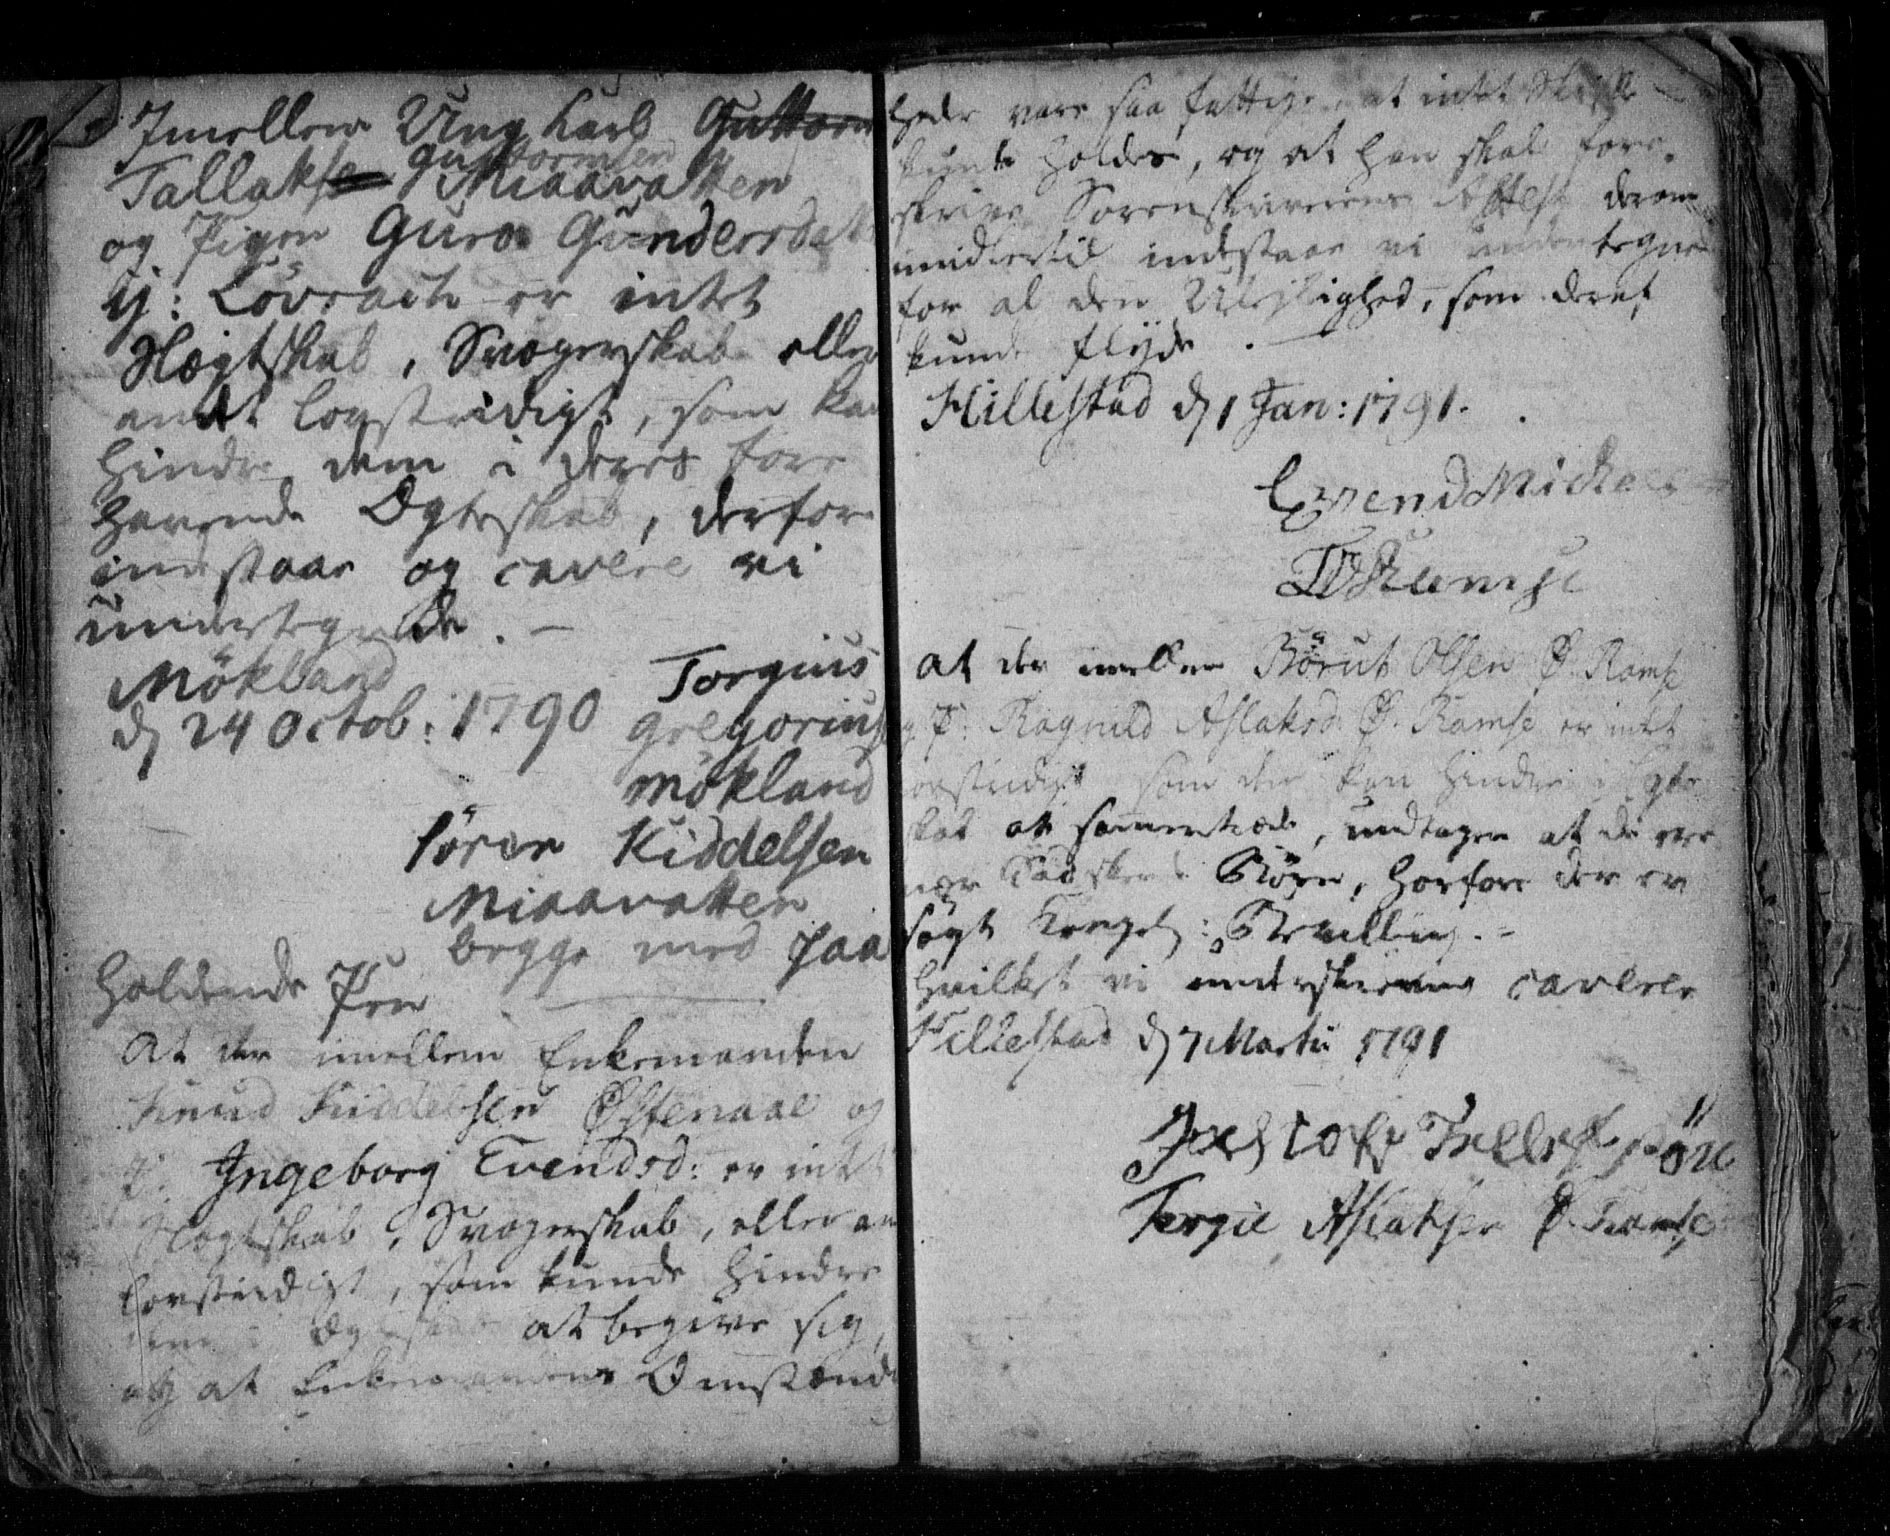 Imellem Ung Karl Guttorm
Tallakse Guttormsen Miaavatten
og Pigen Guro Gundersdatt
Y: Lövrach er intet
Slægtskab, Svogerskab eller
andt lovstridigt, som kan
hindre dem i deres fore
havende Ægteskab, derfore
indestaar og cavere vi
undertegnede. —
Mökland
d 24 Octob: 1790
Torgius
Gregoriuse
Mökland
Sören Kiddelsen
Miaavatten
begge med paa
holdende Pen
At der imellem Enkemanden
Knud Kiddelsen Østenaae og
P: Ingeborg Evendsd: er intet
Slægtskab, Svogerskab, eller an
lovstridigt, som kunde hindre
dem i Ægteskab at begive sig,
og at Enkemandens Omstænde
heder vare saa fattige, at intet Skifte
kunde holdes, og at han skal fore
skrive Sorenskriverens Attest derom
imidlertid indestaar vi undertegne
for al den Uleilighed, som deraf
kunde flyde. —
Hillestad d 1 Jan: 1791.
Evend Mickels
At der imellem Börut Olsen Ø. Ramse
og P: Ragnild Aslaksd: Ø. Ramse er intet
lovstridigt som dem kan hindre i Egte
skab at sammentræde, undtagen at de ere
nær Södskende Börn, hvorfore der er
søgt Kongel: Bevilling. -
hvilket vi underskrevne caverer
Hillestad d 7 Martii 1791
Tergie Aslaksen Ø. Ramse